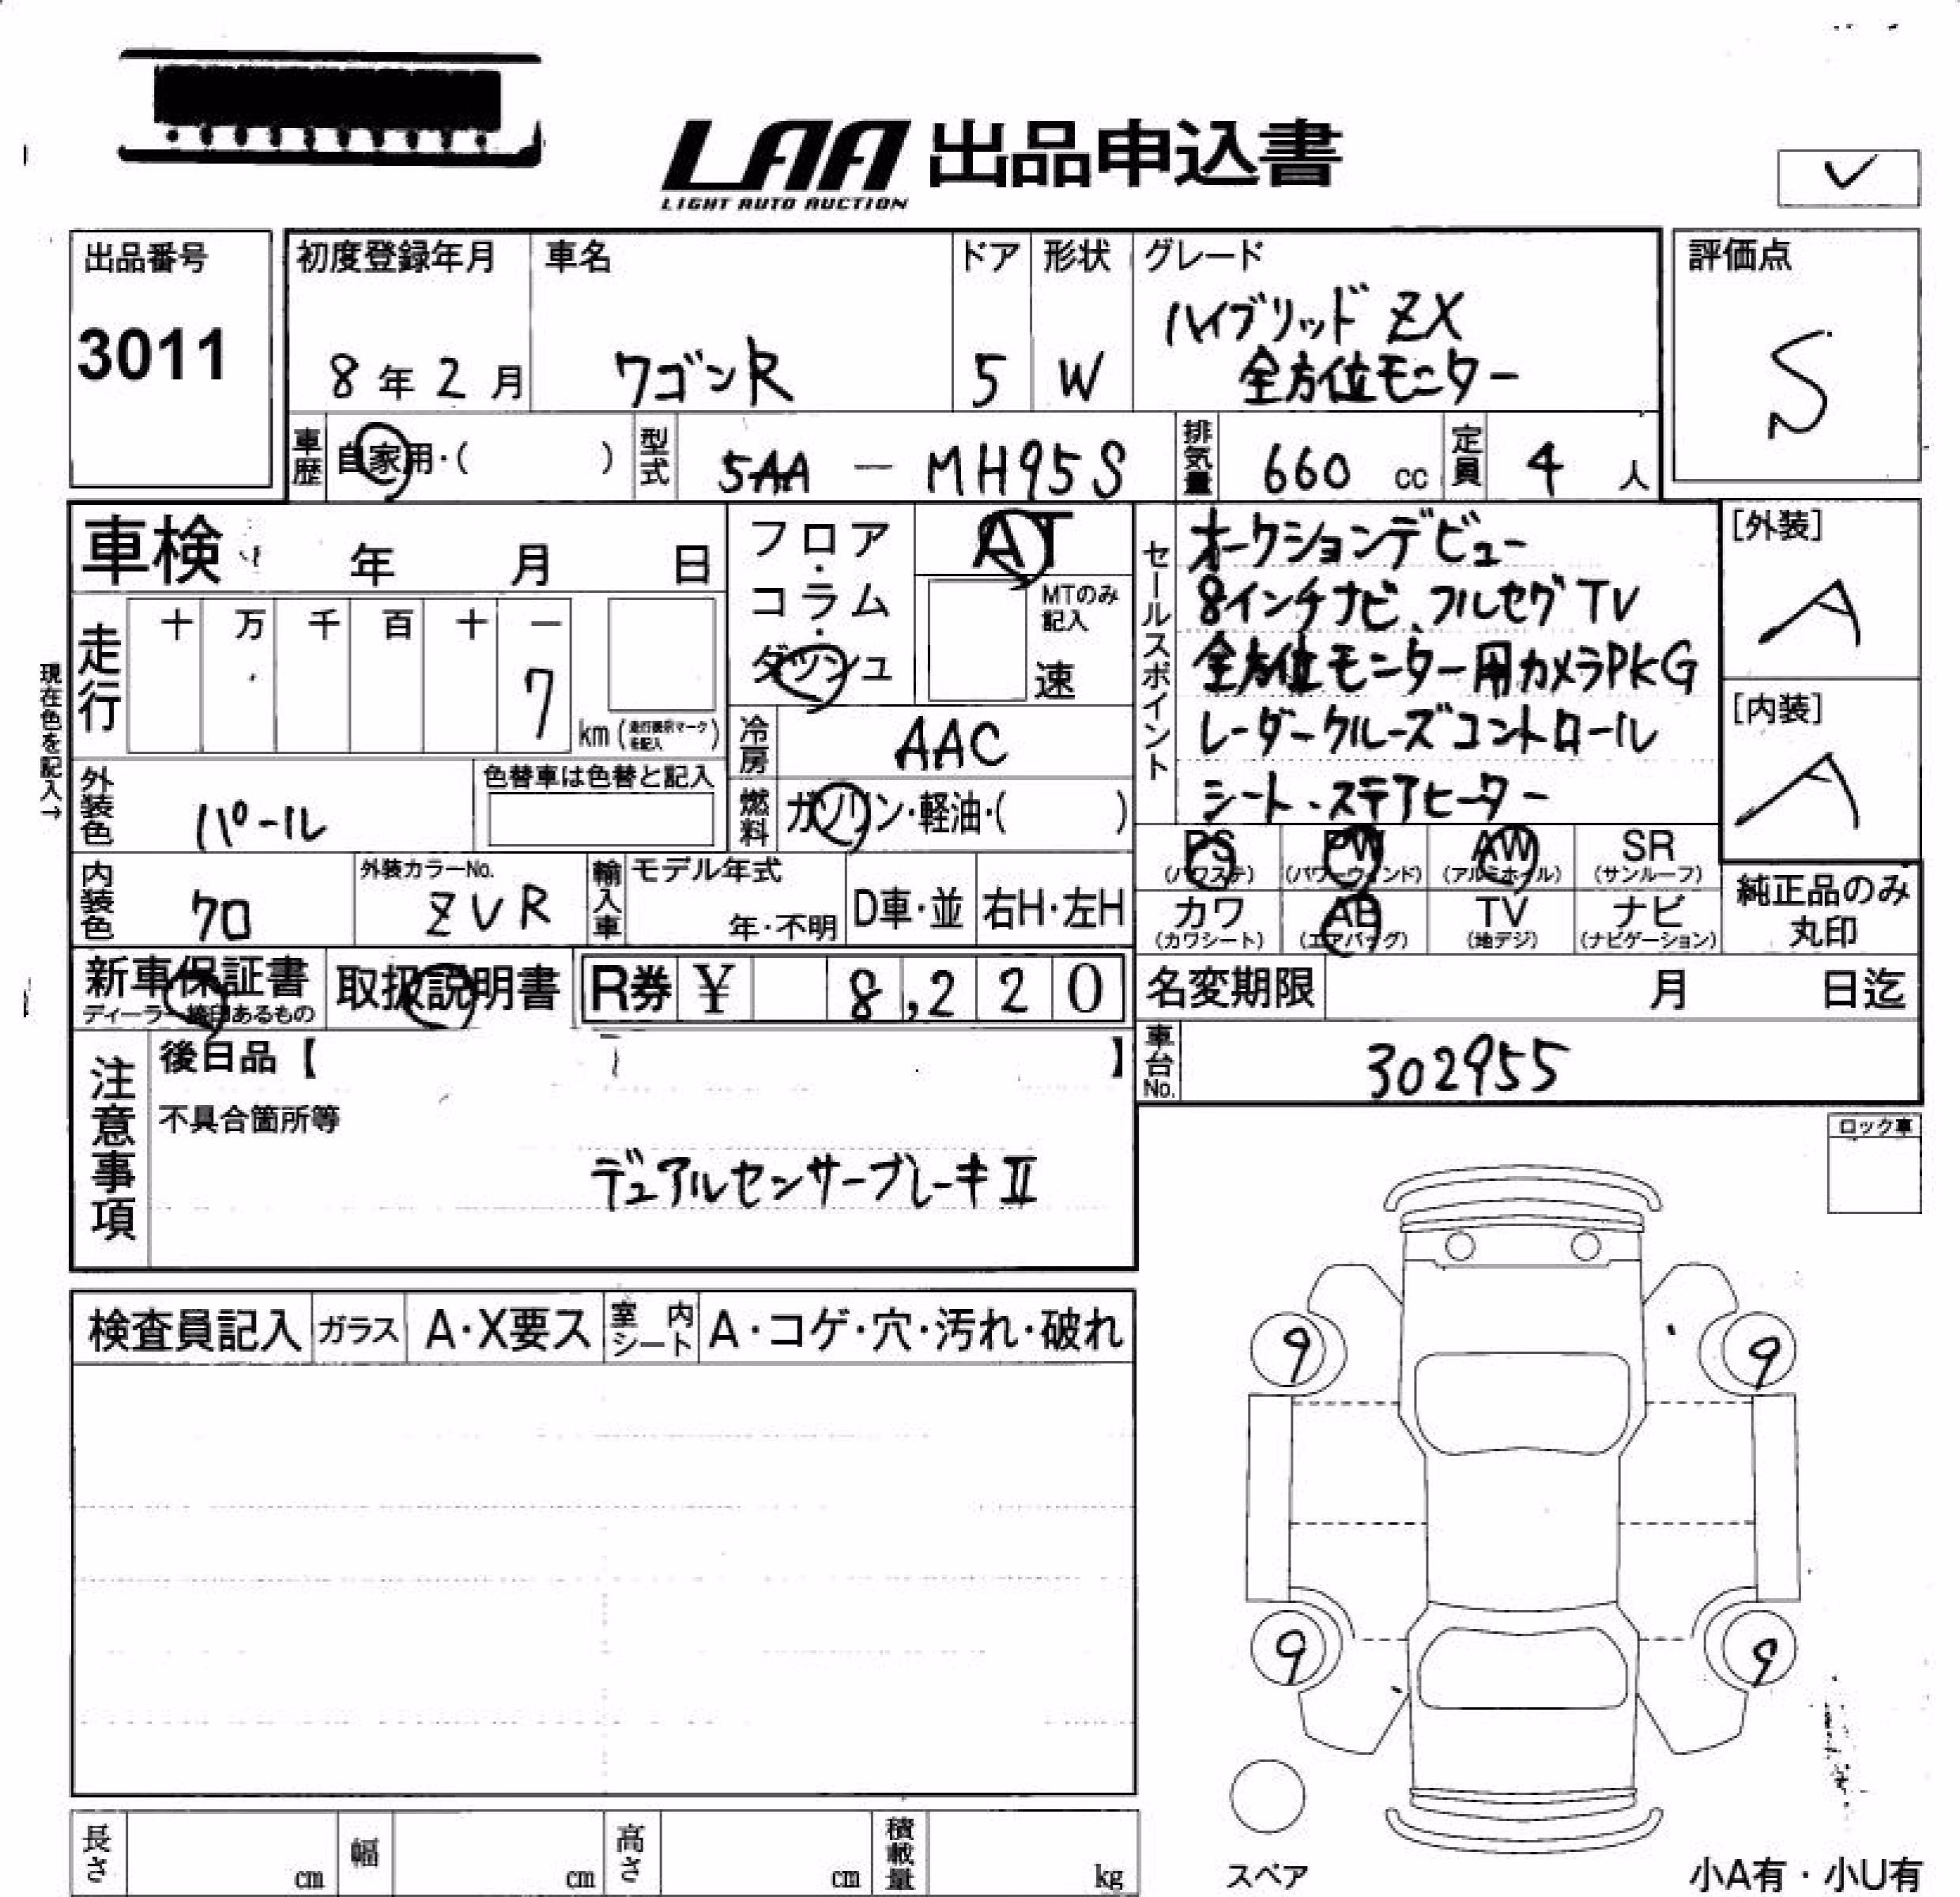 LAA 出品申込書
LIGHT AUTO AUCTION
✓
出品番号
3011
初度登録年月
8年2月
車名
ワゴンR
ドア
5
形状
W
グレード
ハイブリッド ZX
全方位モニター
評価点
S
車歴
自家用・( )
型式
5AA — MH95S
排気量
660 cc
定員
4 人
車検 年 月 日
フロア・コラム・ダッシュ
AT
MTのみ記入
速
セールスポイント
オークションデビュー
8インチナビ、フルセグTV
全方位モニター用カメラPKG
レーダークルーズコントロール
シート、ステアヒーター
[外装]
A
[内装]
A
現在色を記入→
走行
十 万 千 百 十 一
7
km (走行表示マークを記入)
冷房
AAC
外装色
パール
色替車は色替と記入
燃料
ガソリン・軽油・( )
PS (パワステ)
PW (パワーウィンド)
AW (アルミホイール)
SR (サンルーフ)
カワ (カワシート)
AB (エアバッグ)
TV (地デジ)
ナビ (ナビゲーション)
純正品のみ
丸印
内装色
クロ
外装カラーNo.
ZVR
輸入車
モデル年式
年・不明
D車・並
右H・左H
新車保証書
ディーラー捺印あるもの
取扱説明書
R券 ¥ 8,220
名変期限 月 日迄
車台No.
302955
注意事項
後日品【 】
不具合箇所等
デュアルセンサーブレーキⅡ
ロック車
検査員記入
ガラス
A・X要ス
室内シート
A・コゲ・穴・汚れ・破れ
9
9
9
9
長さ cm
幅 cm
高さ cm
積載量 kg
スペア
小A有・小U有